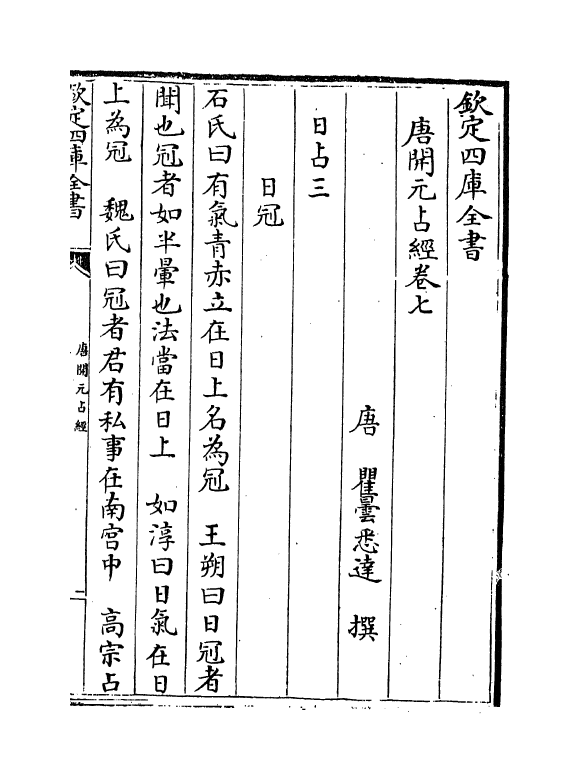 欽定四庫全書
唐開元占經卷七
唐 瞿曇悉達 撰
日占三
日冠
石氏曰有氣青赤立在日上名為冠 王朔曰日冠者
聞也冠者如半暈也法當在日上 如淳曰日氣在日
上為冠 魏氏曰冠者君有私事在南宫中 高宗占
欽定四庫全書
唐開元占經